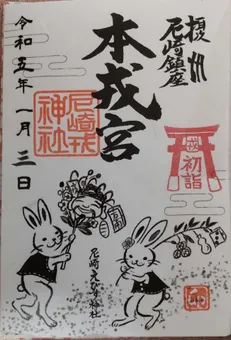 摂州
尼崎鎮座
本戎宮
尼崎戎
神社
令和五年一月三日
戎
初詣
尼崎えびす神社